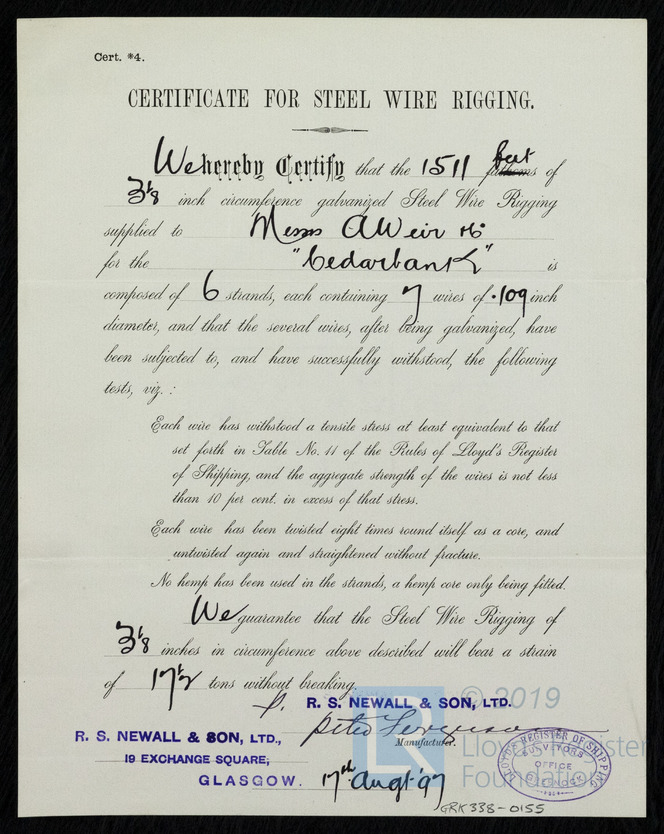 Cert. *4.
CERTIFICATE FOR STEEL WIRE RIGGING.
We hereby Certify that the 1511 feet fathoms of
3 1/8 inch circumference galvanized Steel Wire Rigging
supplied to Messrs A Weir & Co
for the "Cedarbank" is
composed of 6 strands, each containing 7 wires of .109 inch
diameter, and that the several wires, after being galvanized, have
been subjected to, and have successfully withstood, the following
tests, viz. :
Each wire has withstood a tensile stress at least equivalent to that
set forth in Table No. 11 of the Rules of Lloyd's Register
of Shipping, and the aggregate strength of the wires is not less
than 10 per cent. in excess of that stress.
Each wire has been twisted eight times round itself as a core, and
untwisted again and straightened without fracture.
No hemp has been used in the strands, a hemp core only being fitted.
We guarantee that the Steel Wire Rigging of
3 1/8 inches in circumference above described will bear a strain
of 17 1/2 tons without breaking.
p. R. S. NEWALL & SON, LTD.
Peter Ferguson
Manufacturer.
R. S. NEWALL & SON, LTD.,
19 EXCHANGE SQUARE,
GLASGOW.
17th Augt '97
LLOYDS REGISTER OF SHIPPING
SURVEYORS
OFFICE
GREENOCK
GRK338-0155
LR
© 2019
Lloyd's Register
Foundation